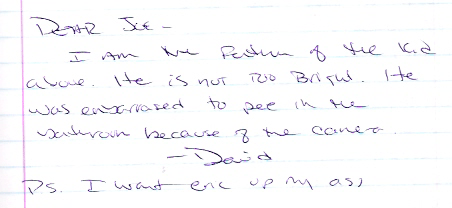 Dear Joe -
I am the Father of the kid
above. He is not too Bright. He
was embarrased to pee in the
bathroom because of the camera.
- David
Ps. I want eric up my ass